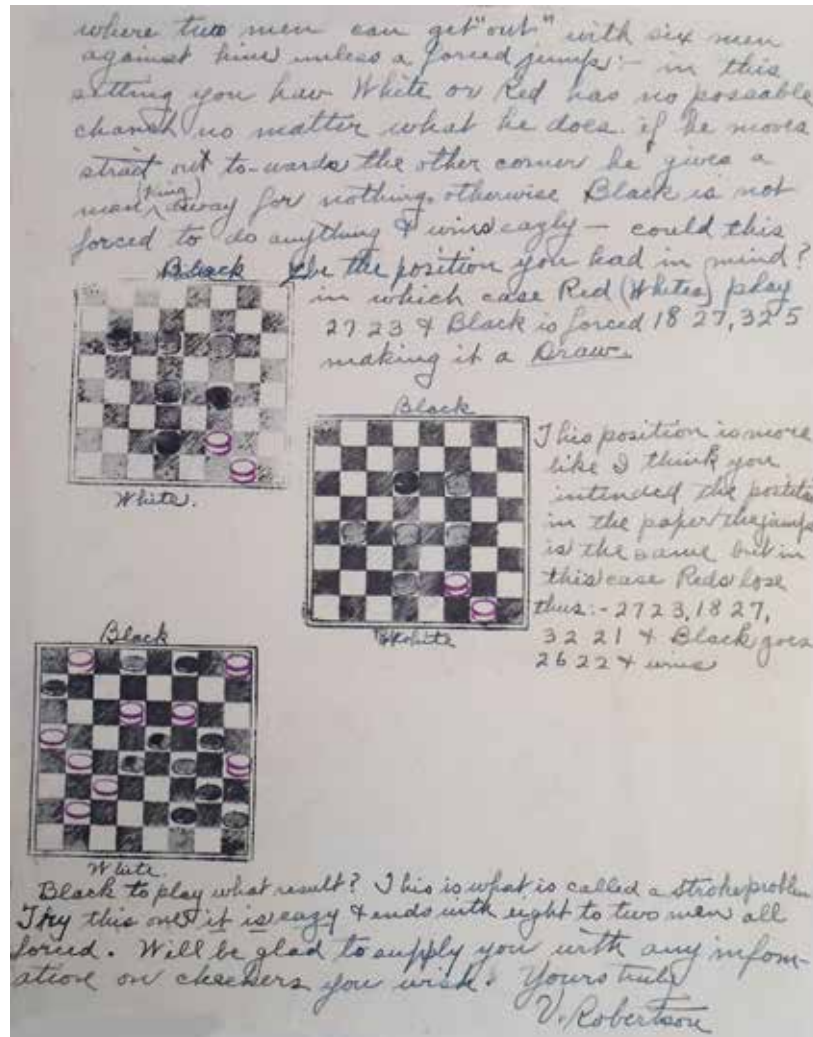 where two men can get "out" with six men
against him unless a forced jump:- in this
setting you hav White or Red has no possable
chanch no matter what he does. if he moves
strait out to-wards the other corner he gives a
man (King) away for nothing. otherwise Black is not
forced to do anything & wins eazly — could this
Black be the position you had in mind?
in which case Red (Whites) play
27 23 & Black is forced 18 27, 32 5
making it a Draw.
White.
Black
This position is more
like I think you
intended the position
in the paper the jump
is the same but in
this case Reds lose
thus:- 27 23, 18 27,
32 21 & Black goes
26 22 & wins
White
Black
White.
Black to play what result? This is what is called a stroke problem
Try this one it is eazy & ends with eight to two men all
forced. Will be glad to supply you with any infom-
ation on checkers you wish. Yours truly
V. Robertson